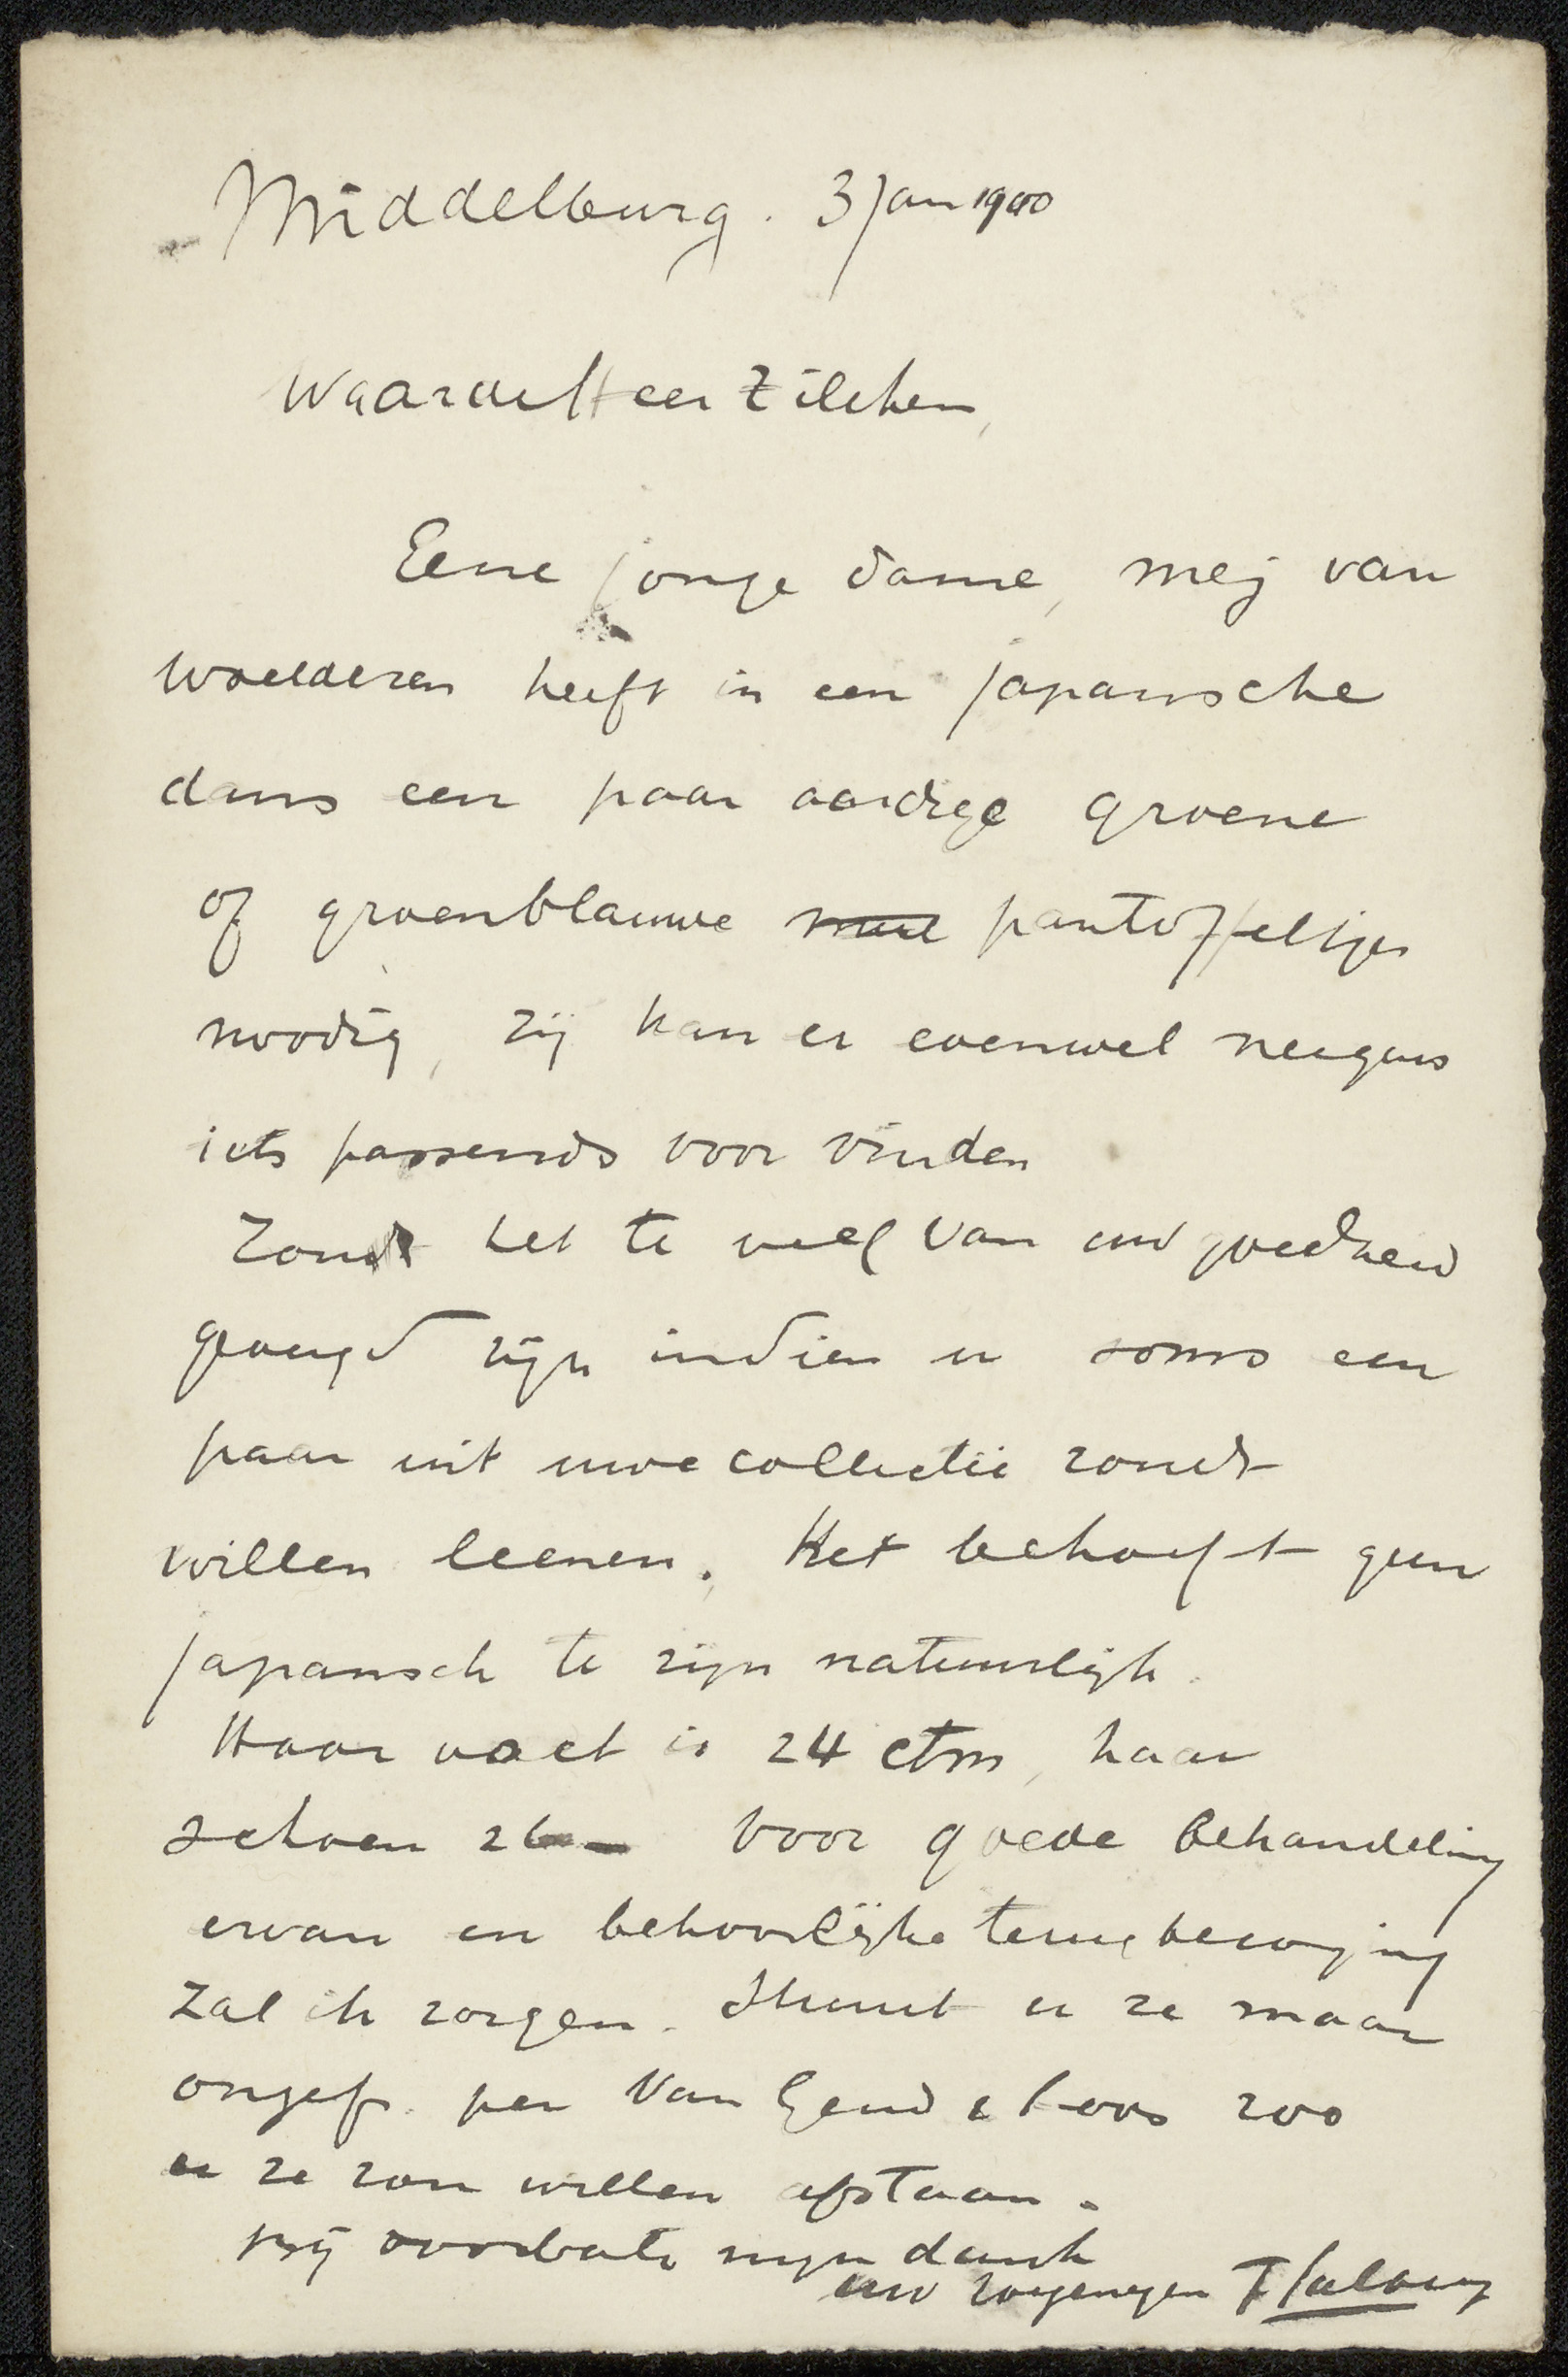 Middelburg. 3 Jan 1900
Waarde Heer Zilcken,
Eene jonge dame, mej van
Woelderen heeft in een japansche
dans een paar aardige groene
of groenblauwe pantoffeltjes
noodig, zij kan er evenwel nergens
iets passends voor vinden
Zoudt het te veel van uw goedheid
gevergd zijn indien u soms een
paar uit uwe collectie zoudt
willen leenen. Het behoeft geen
japansch te zijn natuurlijk.
Haar voet is 24 ctm, haar
schoen 26 – Voor goede behandeling
ervan en behoorlijke terugbezorging
zal ik zorgen. Stuurt u ze maar
ongefr. per Van Gend & Loos zoo
u ze zou willen afstaan.
Bij voorbaat mijn dank
uw toegenegen